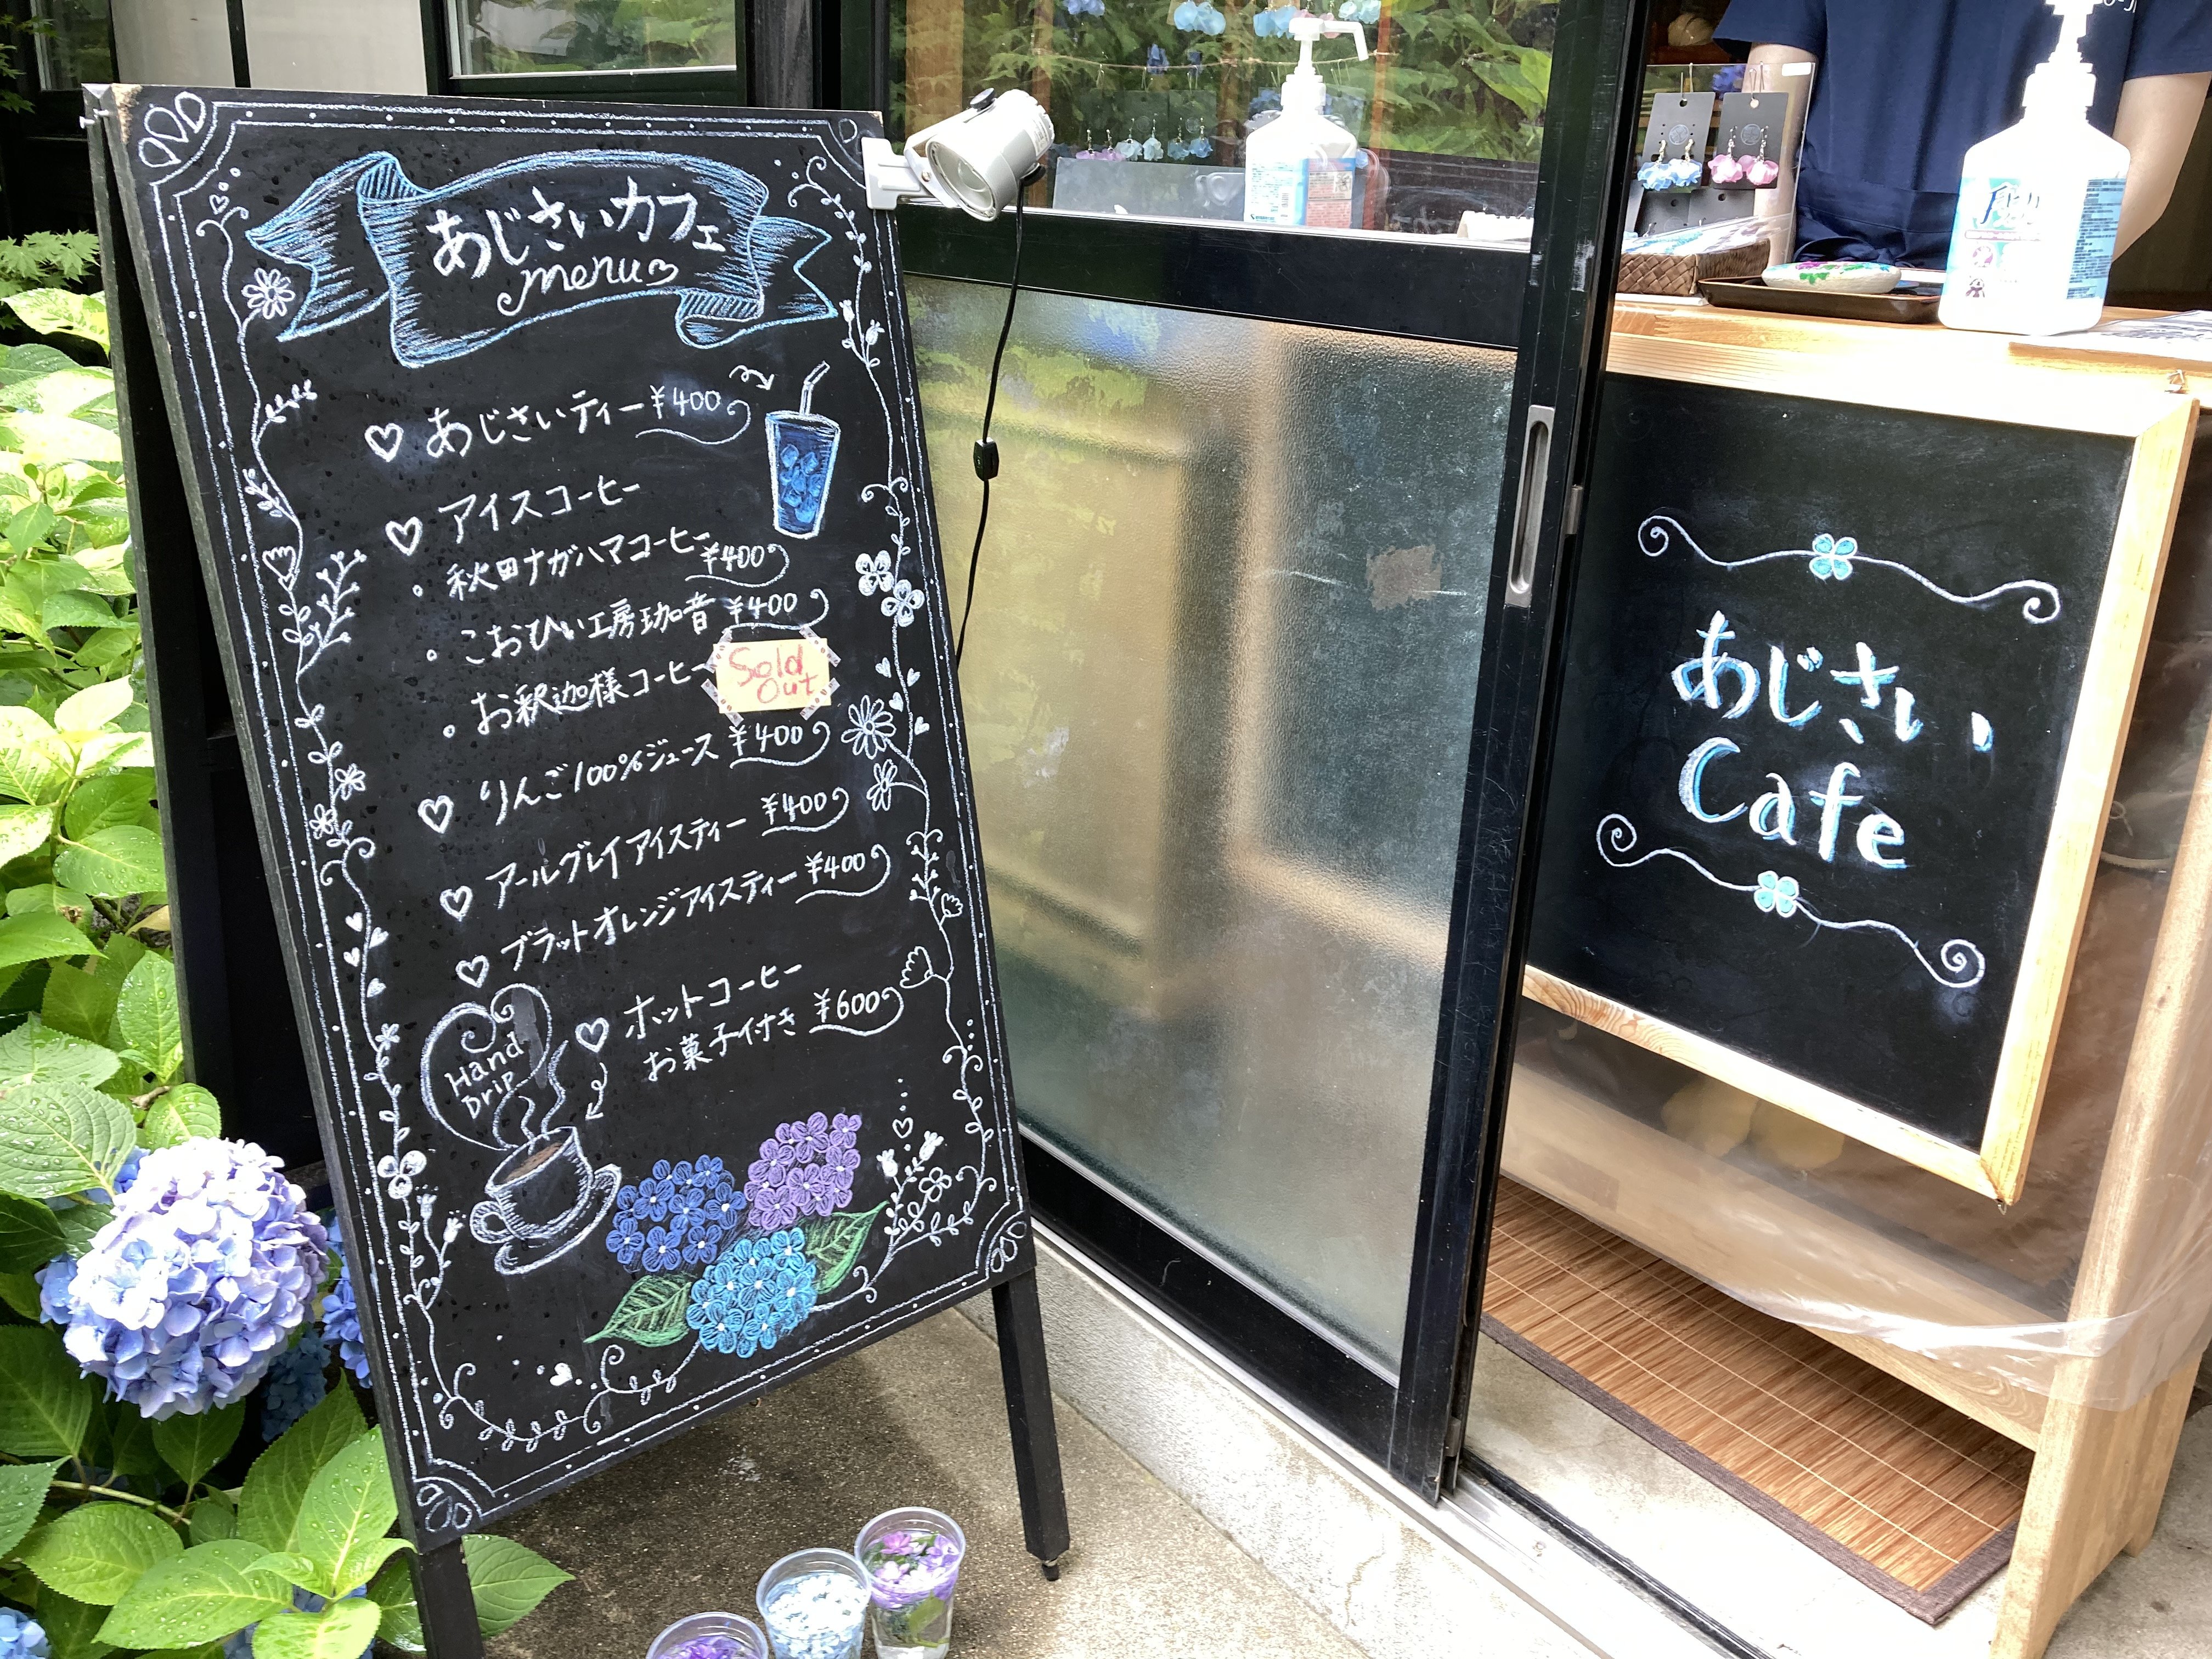 あじさいカフェ
menu
あじさいティー ¥400
アイスコーヒー
・秋田ナガハマコーヒー ¥400
・こおひい工房珈音 ¥400
・お釈迦様コーヒー Sold Out
りんご100%ジュース ¥400
アールグレイアイスティー ¥400
ブラットオレンジアイスティー ¥400
ホットコーヒー
お菓子付き ¥600
Hand
Drip
あじさい
Cafe